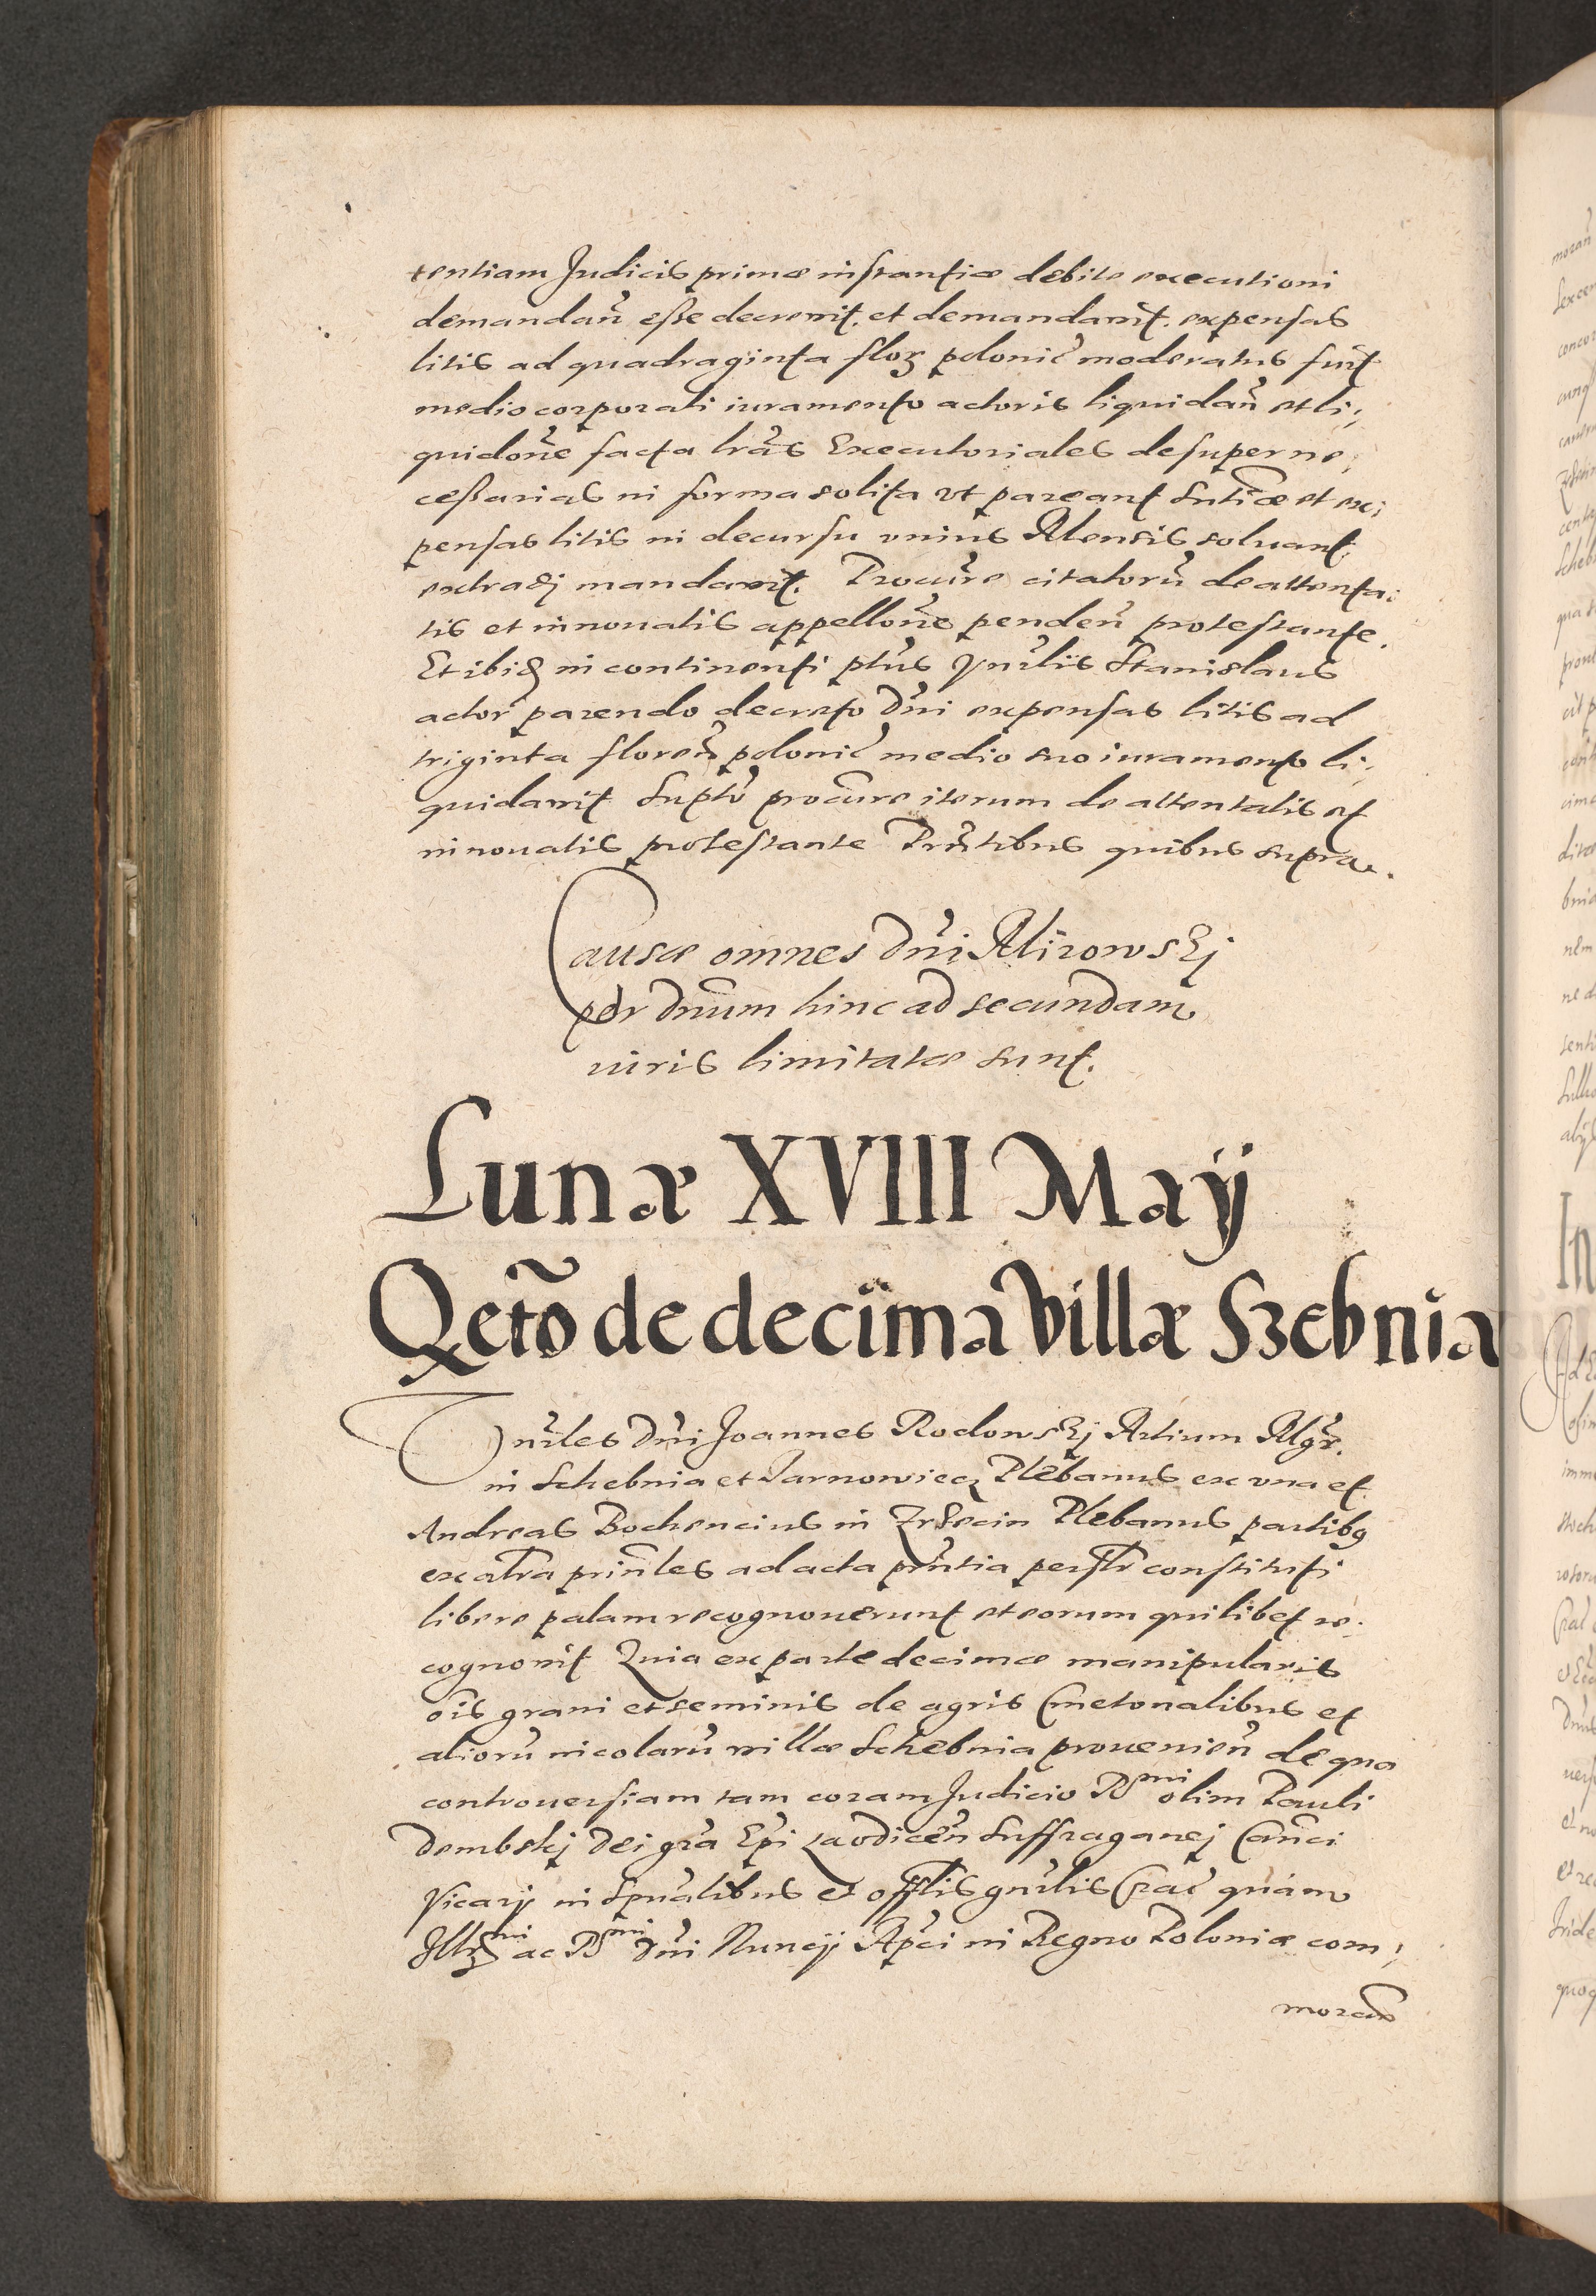 tentiam Judicis primæ instantiæ debite executioni
demandañ eße decrevit. et demandavit. expensas
litis ad quadraginta floꝝ polonic̃ moderatus fuit
medio corporali iuramento actoris liquidañ et li,
quidoñe facta lrãs Executoriales desuper ne,
ceßarias in forma solita vt pareant sntiæ et ex,
pensas litis in decursu vnius Mensis soluant
extradj mandavit. Procure citatorũ de attenta,
tis et innouatis appelloñe pendeñ protestante.
Et ibid in continenti ptus Vnrlis Stanislaus
actor parendo decreto Dni expensas litis ad
triginta floreñ polonic̃ medio suo iuramento li,
quidavit Supto procure iterum de attentatis et
innouatis protestante Prñtibus quibus supra.
Causæ omnes Dñi Mirowskj
per Dnum hinc ad secundam
iuris limitatæ sunt.
Lunæ XVIII Maÿ
Qetõ de decima villæ Szebnia
Vnrles Dñi Joannes Rodowskj Artium Mgr.
in Schebnia et Tarnowiecz Plebanus ex vna et
Andreas Bochencius in Zrsecin Plebanus partibꝗ
ex altra prinles ad acta prñtia persltr constituti
libere palam recognouerunt et eorum quilibet re,
cognovit Quia ex parte decimæ manipularis
ois grani et seminis de agris Cmetonalibus et
aliorũ incolarũ villæ Schebnia prouenieñ de qua
controuersiam tam coram Judicio Rmi olim Pauli
Dembskj Dei gra Epi Laodiceñ Suffraganej Canci
Vicarij in Spualibus et offlis gnrlis Crac̃ quam
Illmi ac Rmi Dñi Nuncij Apci in Regno Poloniæ com,
morañ